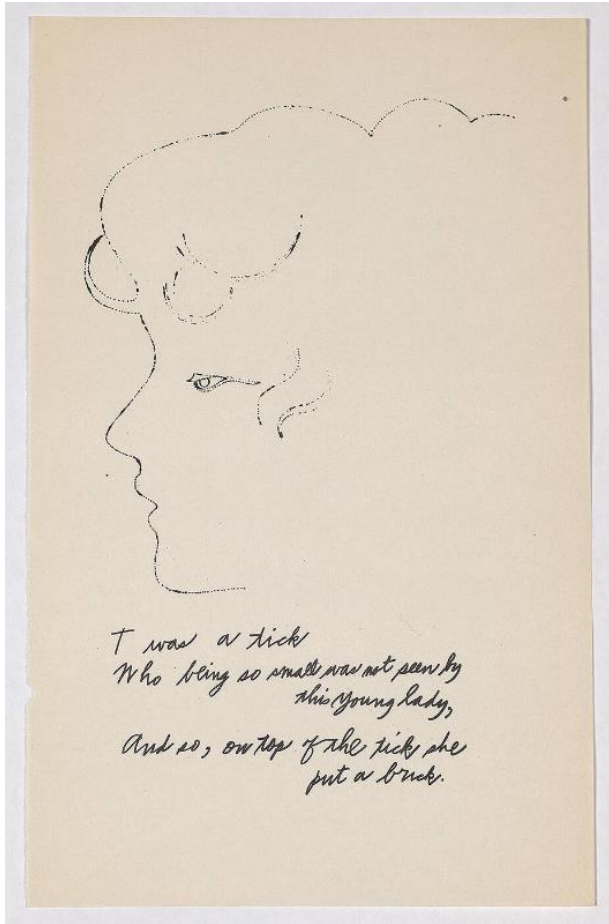 T was a tick
Who being so small was not seen by
this Young lady,
And so, on top of the tick she
put a brick.